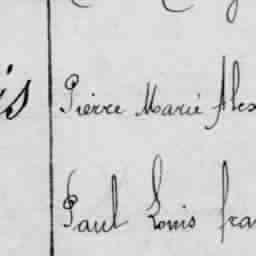 is Pierre Marie Alex
Paul Louis fra